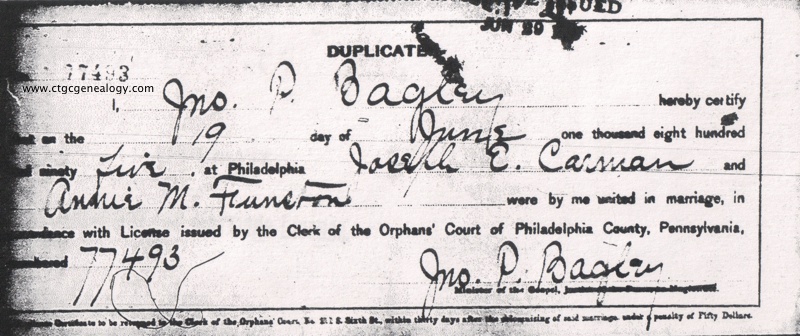 ISSUED
JUN 20
DUPLICATE
77493
www.ctgcgenealogy.com
I, Jno. P. Bagley hereby certify
on the 19 day of June one thousand eight hundred
ninety five. at Philadelphia Joseph E. Carman and
Annie M. Funston were by me united in marriage, in
with License issued by the Clerk of the Orphans' Court of Philadelphia County, Pennsylvania,
77493
Jno. P. Bagley
Minister of the Gospel,
to be returned to the Clerk of the Orphans' Court, Sixth St., within thirty days after the solemnizing of said marriage, under a penalty of Fifty Dollars.